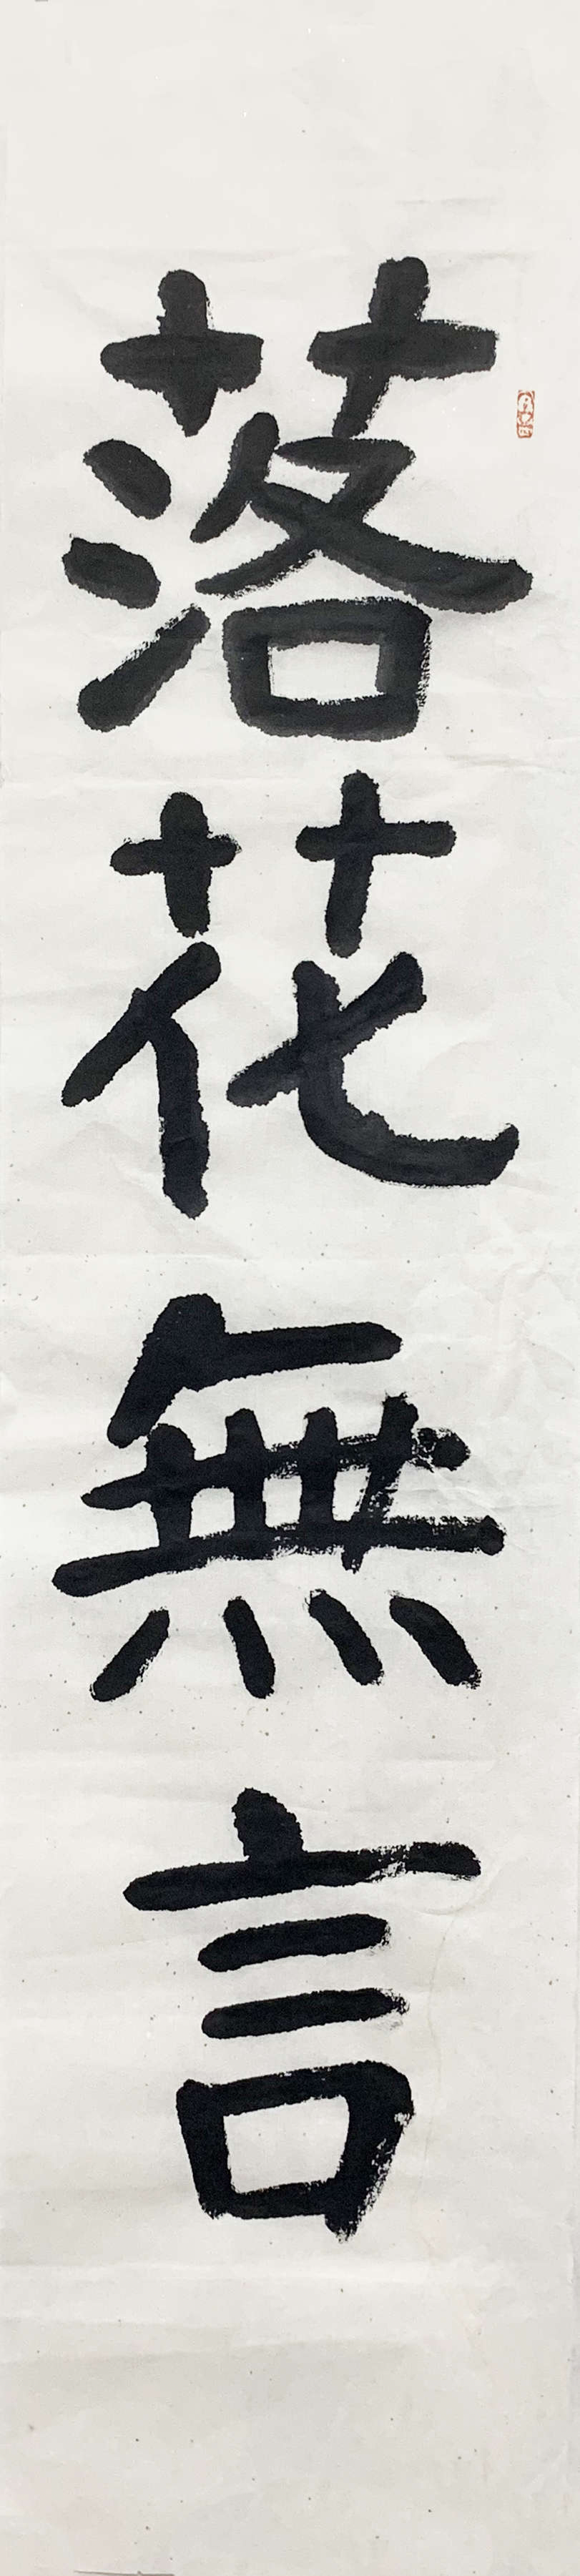 落花無言